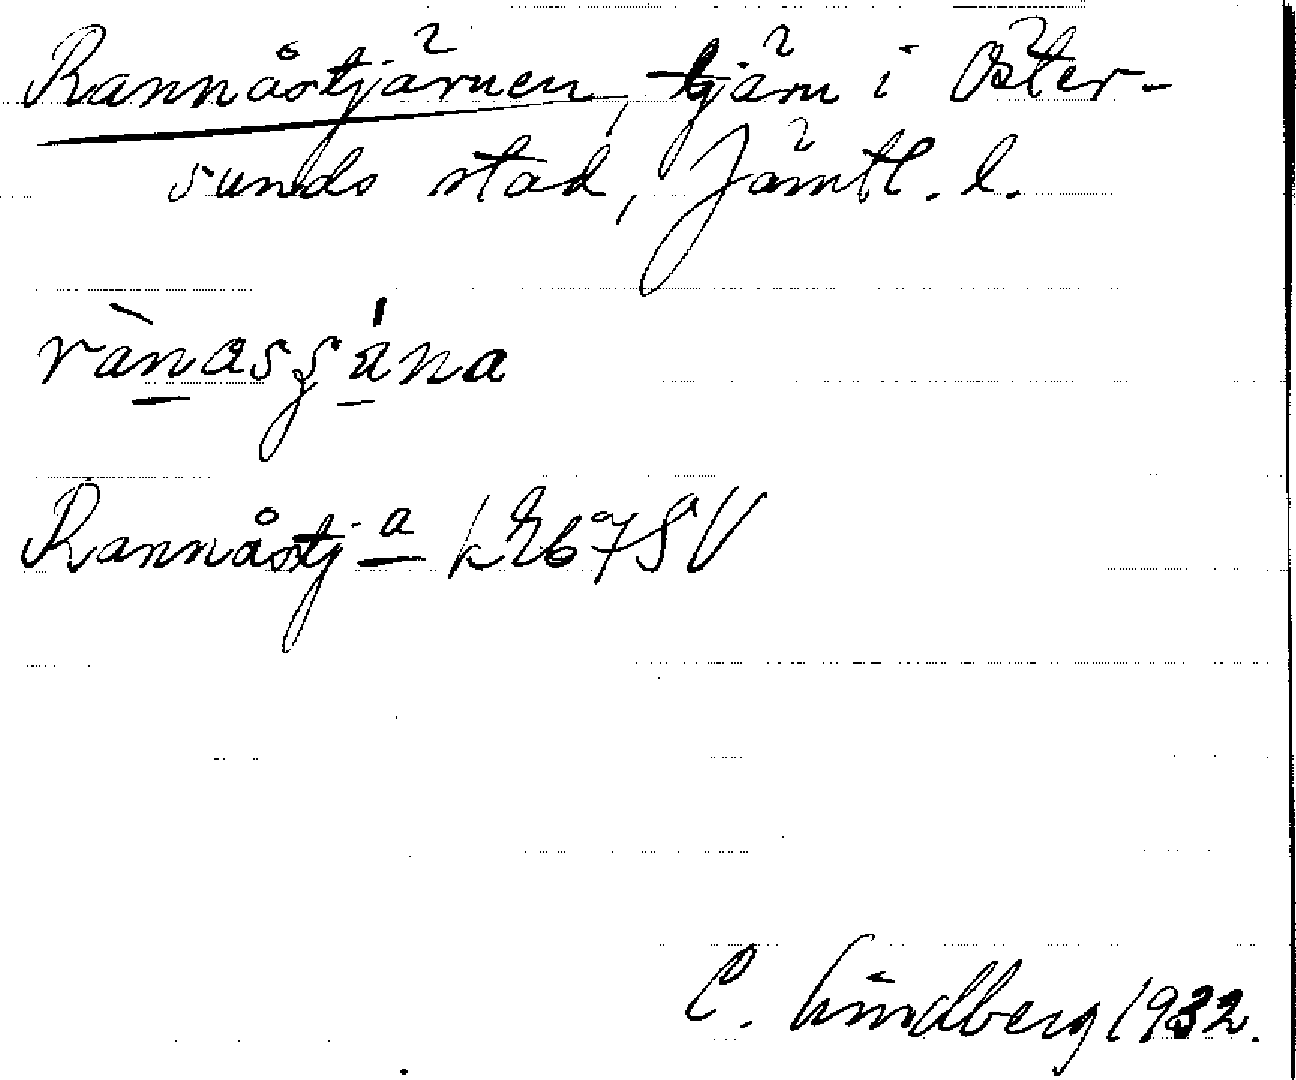 Rannåstjärnen, tjärn i Öster-
sunds stad, Jämtl. l.
rànasʂána
Rannåstj a
C. Lindberg 1932.